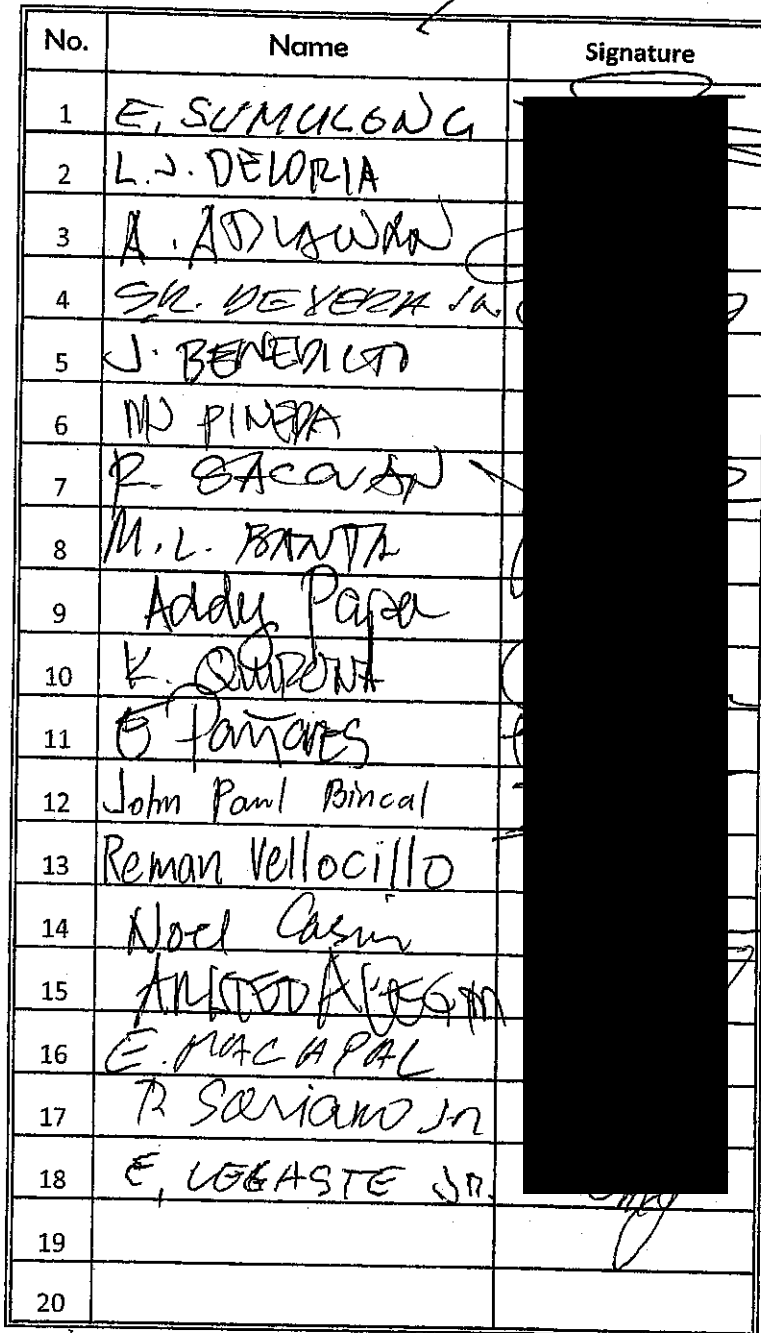 No. Name Signature
1 E. SUMULONG
2 L.J. DELORIA
3 A. ADLAWAN
4 SR. DEVERA Jr.
5 J. BENEDICTO
6 MJ PINEDA
7 R.
8 M.L. BANTA
9 Addy Papa
10 K.
11 E Pañares
12 John Paul Bincal
13 Reman Vellocillo
14 Noel Casin
15
16 E. MACAPAL
17 R Soriano Jr
18 E. LEGASTE JR.
19
20